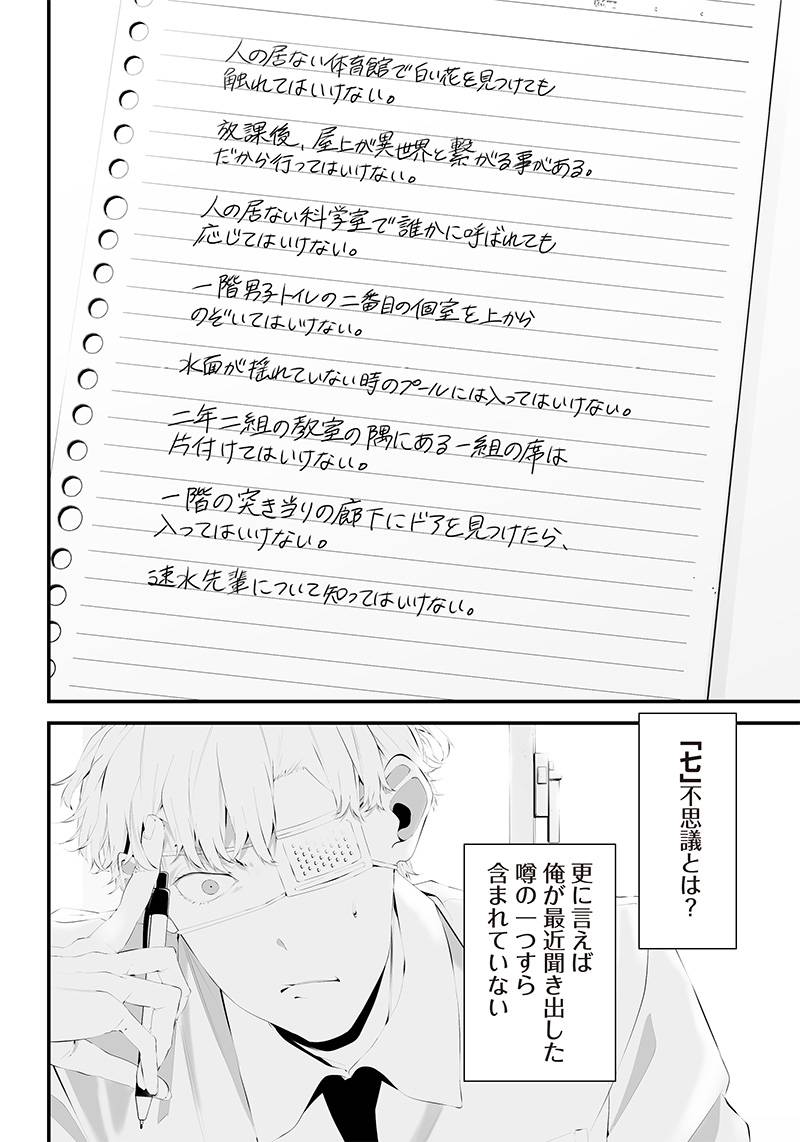 人の居ない体育館で白い花を見つけても
触れてはいけない。
放課後、屋上が異世界と繋がる事がある。
だから行ってはいけない。
人の居ない科学室で誰かに呼ばれても
応じてはいけない。
一階男子トイレの二番目の個室を上から
のぞいてはいけない。
水面が揺れていない時のプールには入ってはいけない。
二年二組の教室の隅にある一組の席は
片付けてはいけない。
一階の突き当りの廊下にドアを見つけたら、
入ってはいけない。
速水先輩について知ってはいけない。
「七」不思議とは？
更に言えば
俺が最近聞き出した
噂の一つすら
含まれていない